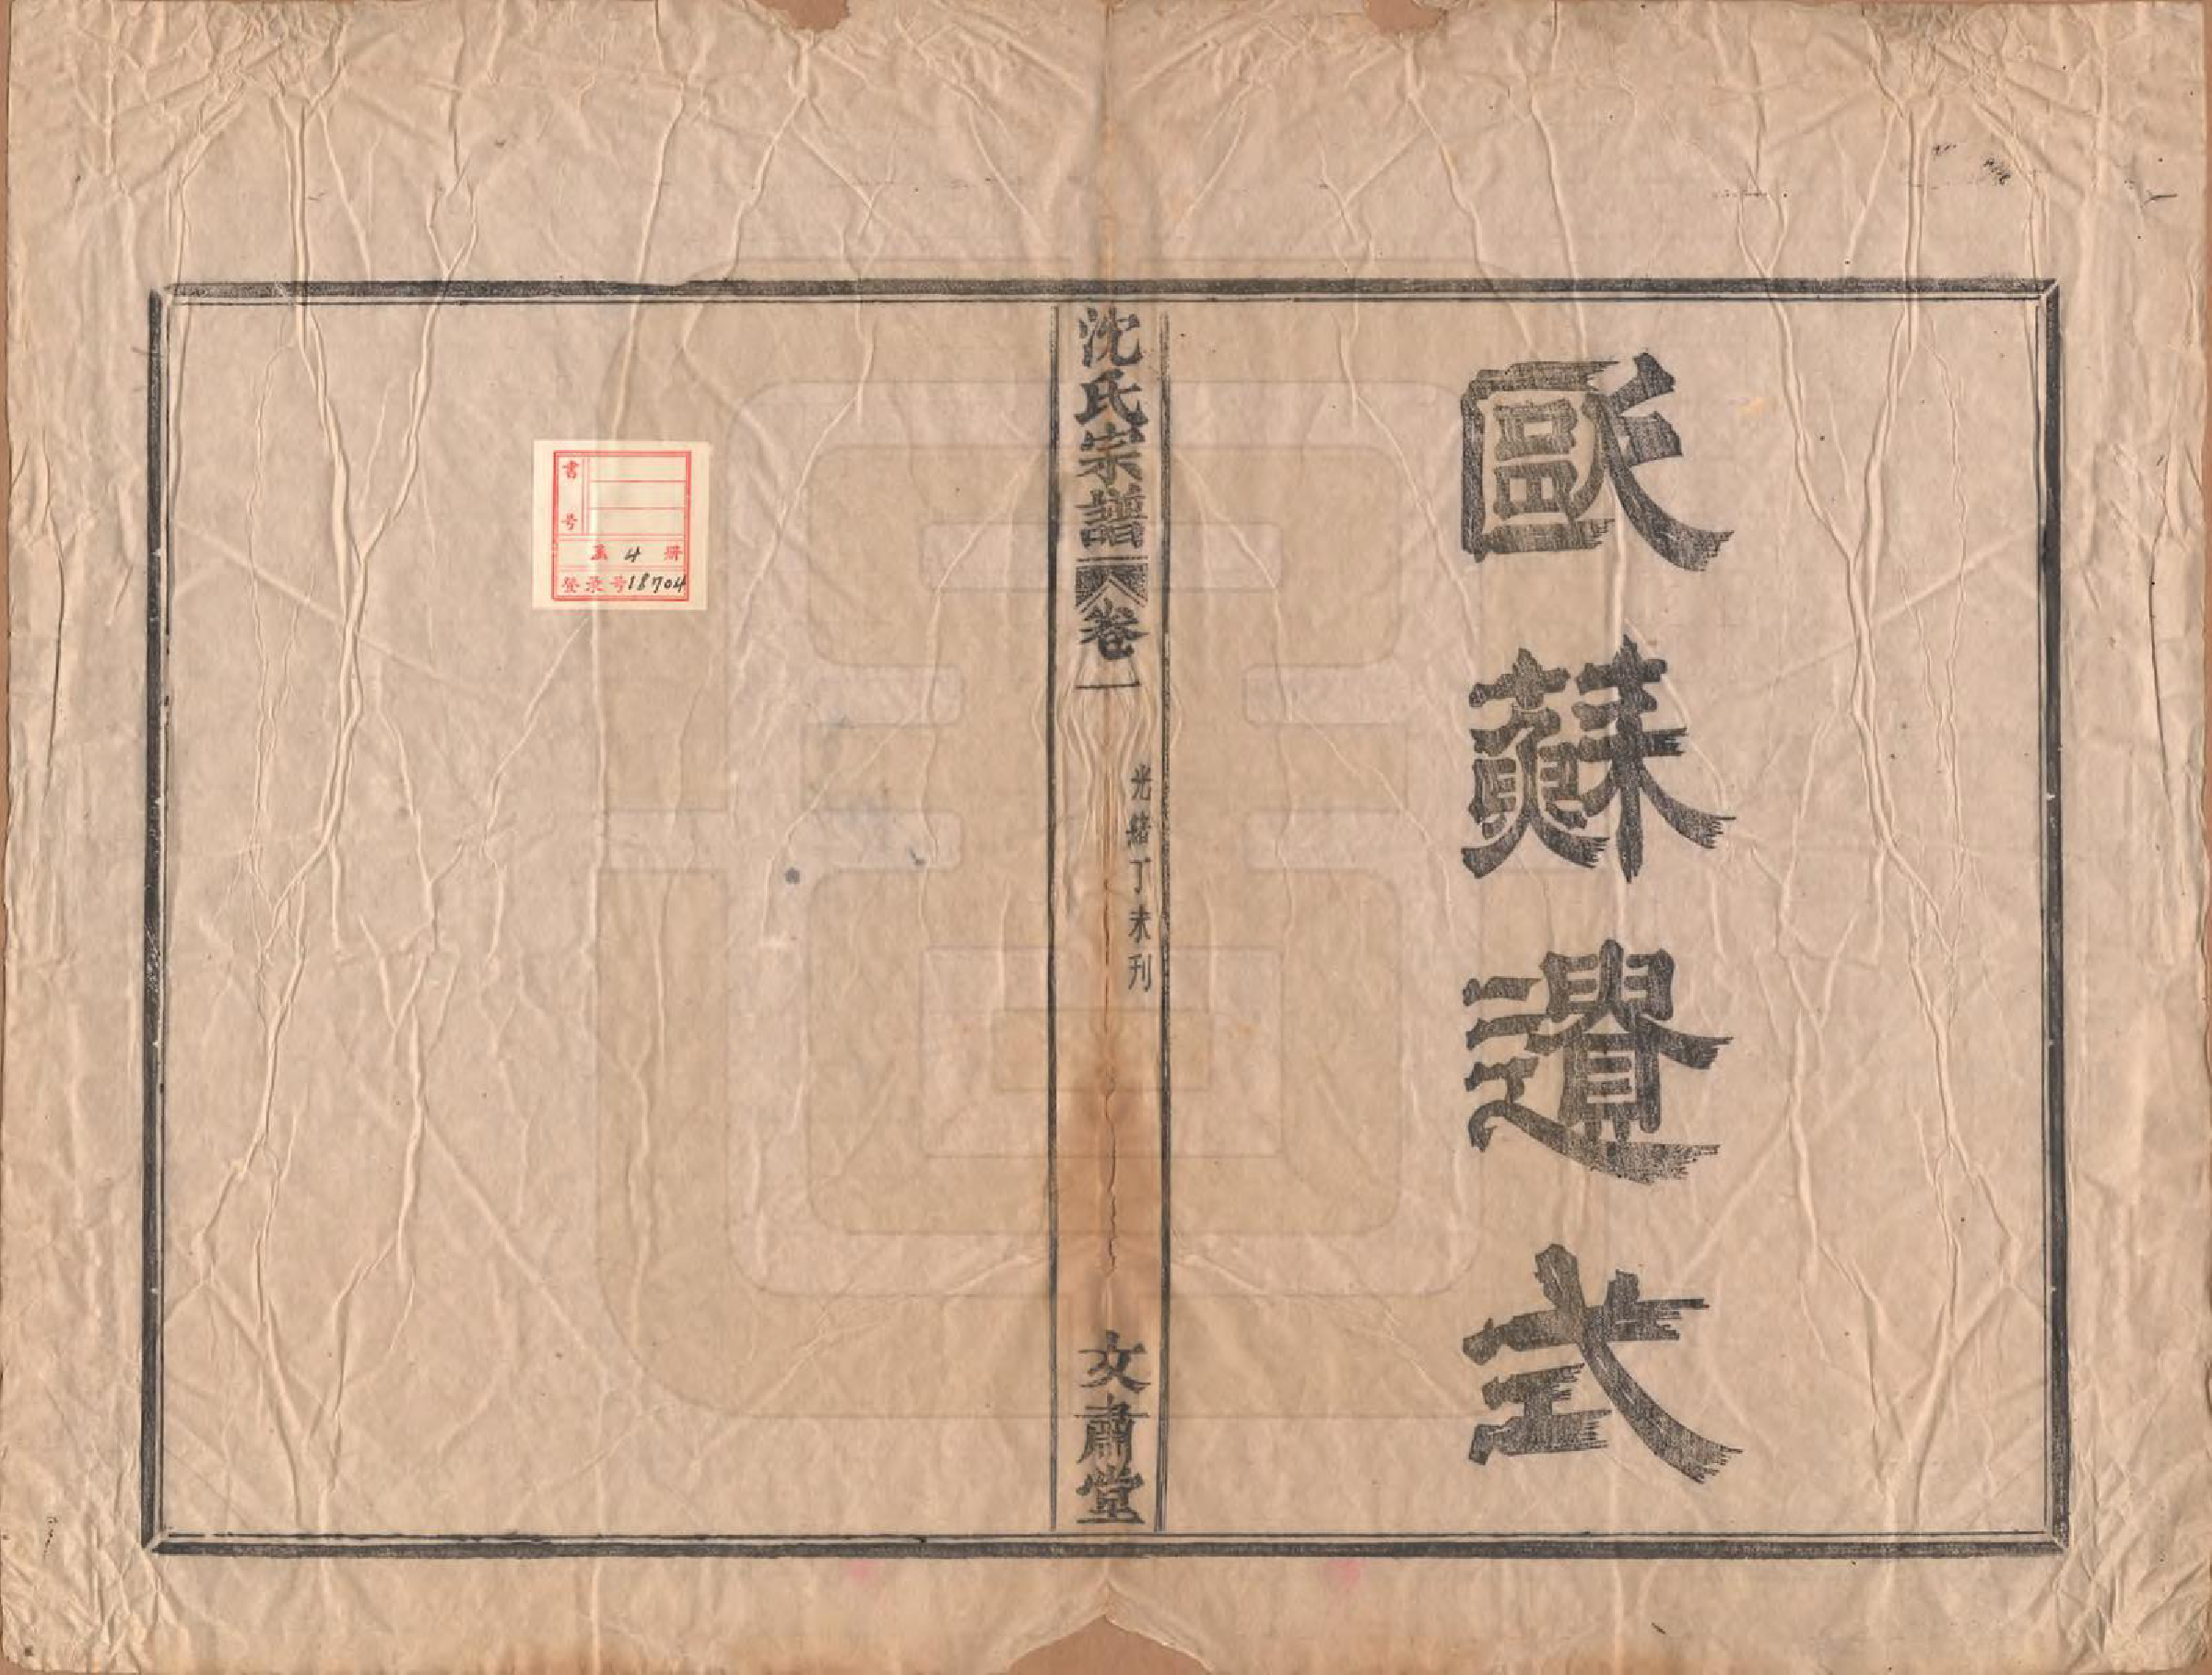 歐蘇遺式
沈氏宗譜 卷一
光緒丁未刊
文肅堂
書号
4 册
登录号18704